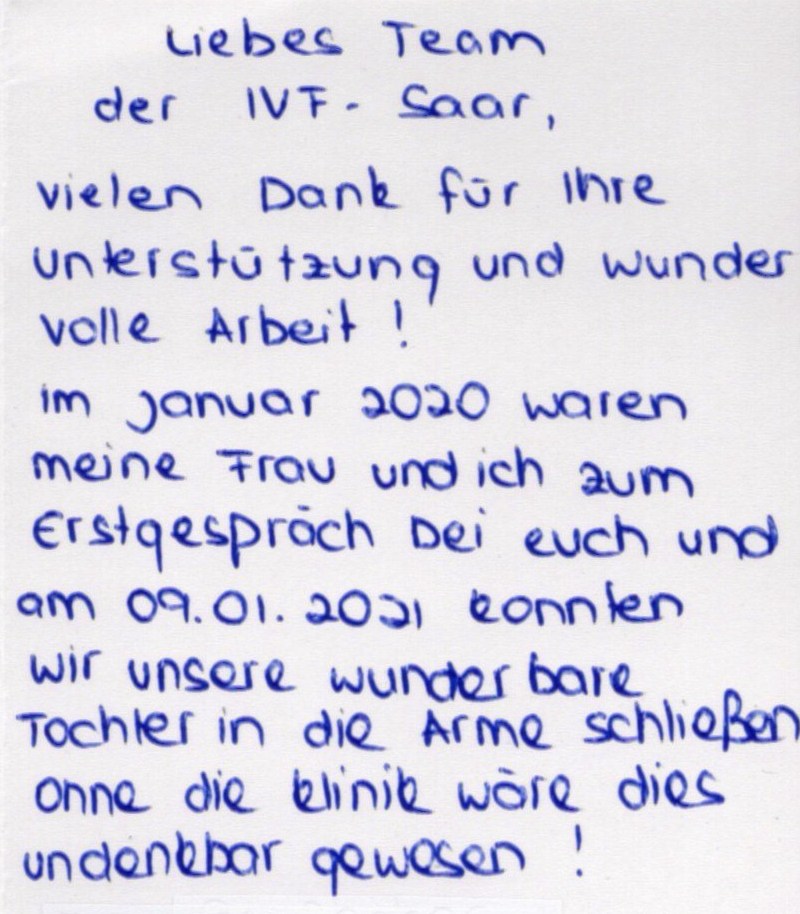 Liebes Team
der IVF- Saar,
vielen Dank für Ihre
Unterstützung und wunder
volle Arbeit !
im Januar 2020 waren
meine Frau und ich zum
Erstgespräch bei euch und
am 09.01.2021 konnten
wir unsere wunderbare
Tochter in die Arme schließen
ohne die Klinik wäre dies
undenkbar gewesen !